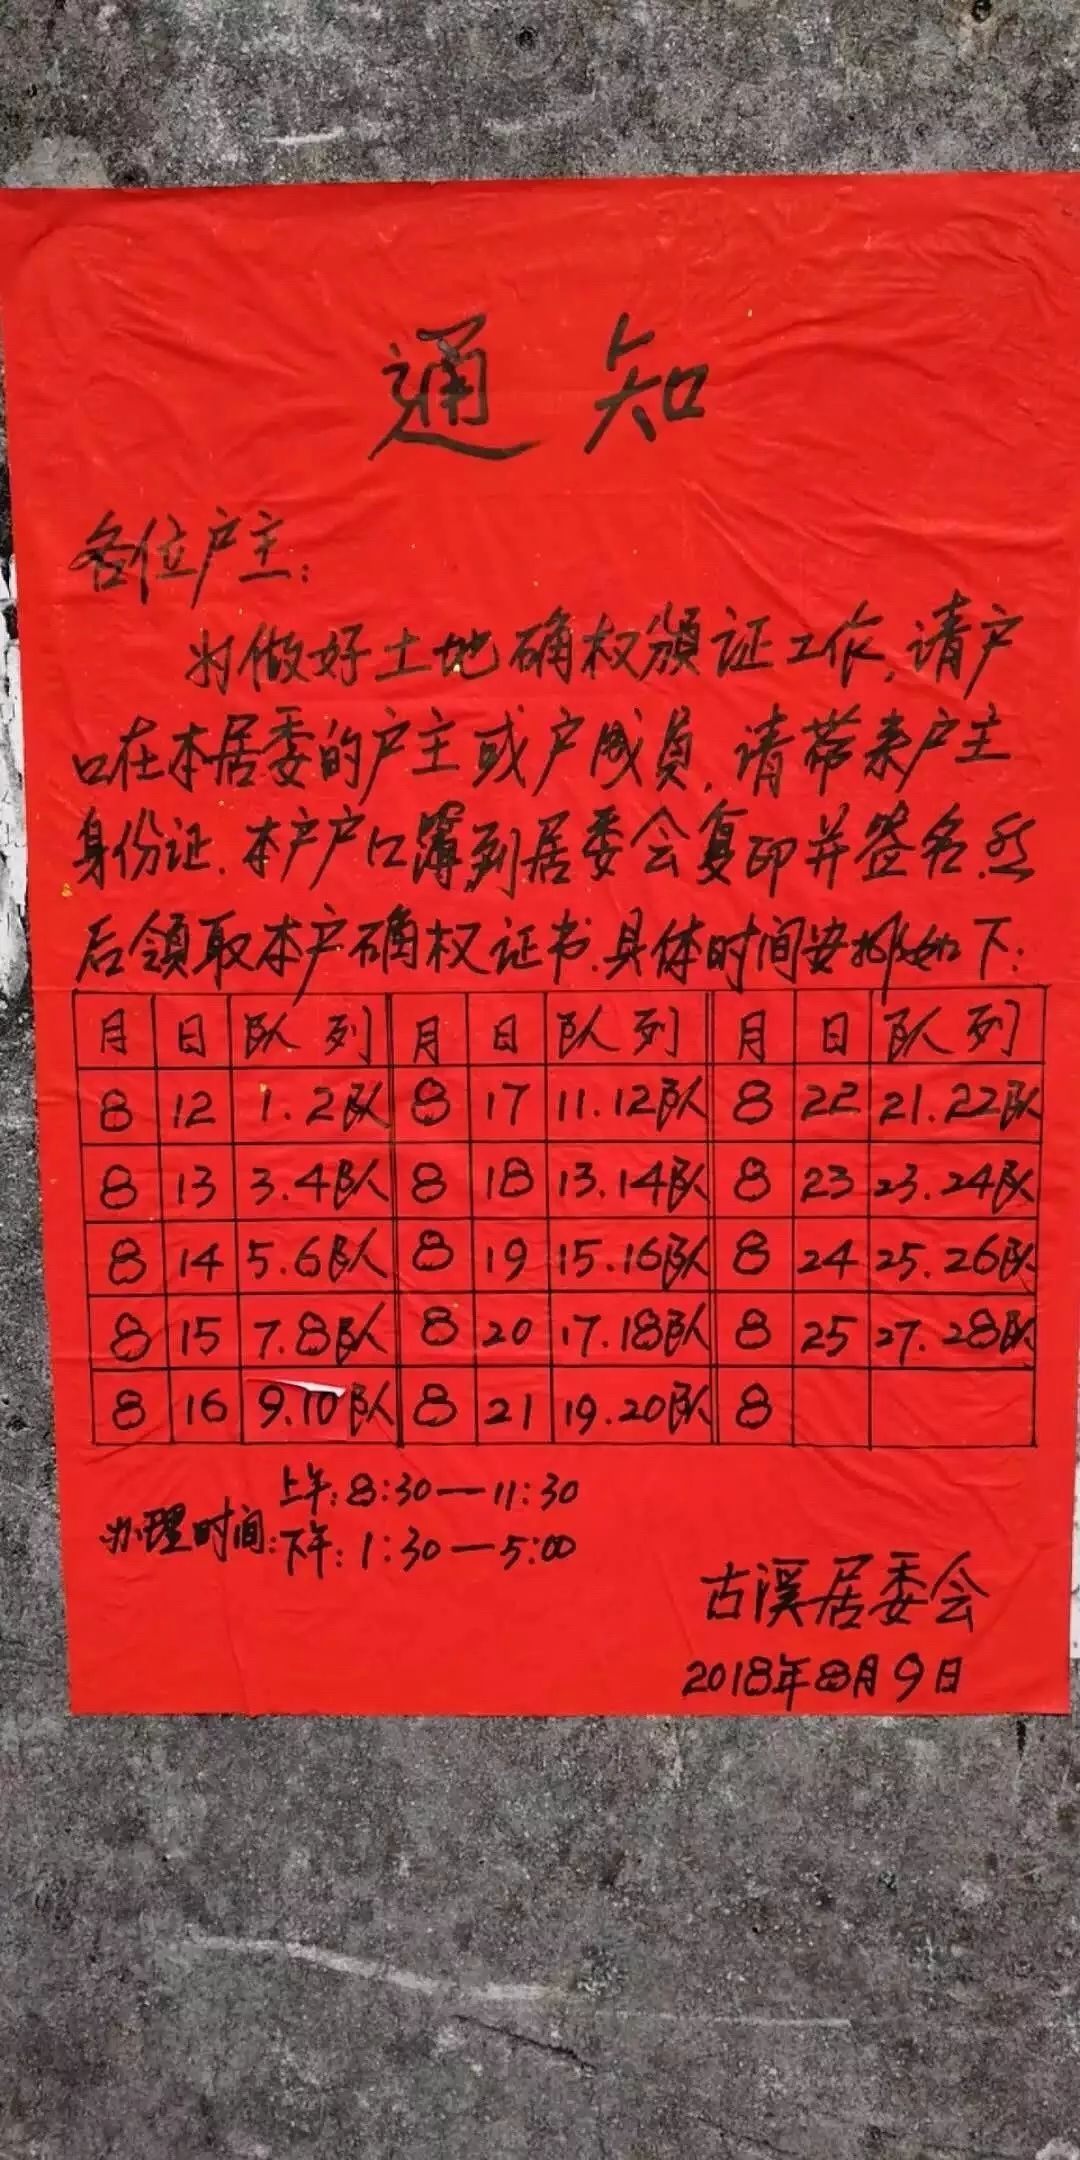 通知
各位户主:
为做好土地确权颁证工作,请户
口在本居委的户主或户成员,请带来户主
身份证.本户户口簿,到居委会复印并签名.然
后领取本户确权证书.具体时间安排如下:
月 日 队列 月 日 队列 月 日 队列
8 12 1.2队 8 17 11.12队 8 22 21.22队
8 13 3.4队 8 18 13.14队 8 23 23.24队
8 14 5.6队 8 19 15.16队 8 24 25.26队
8 15 7.8队 8 20 17.18队 8 25 27.28队
8 16 9.10队 8 21 19.20队 8
上午:8:30—11:30
办理时间:下午:1:30—5:00
古溪居委会
2018年8月9日